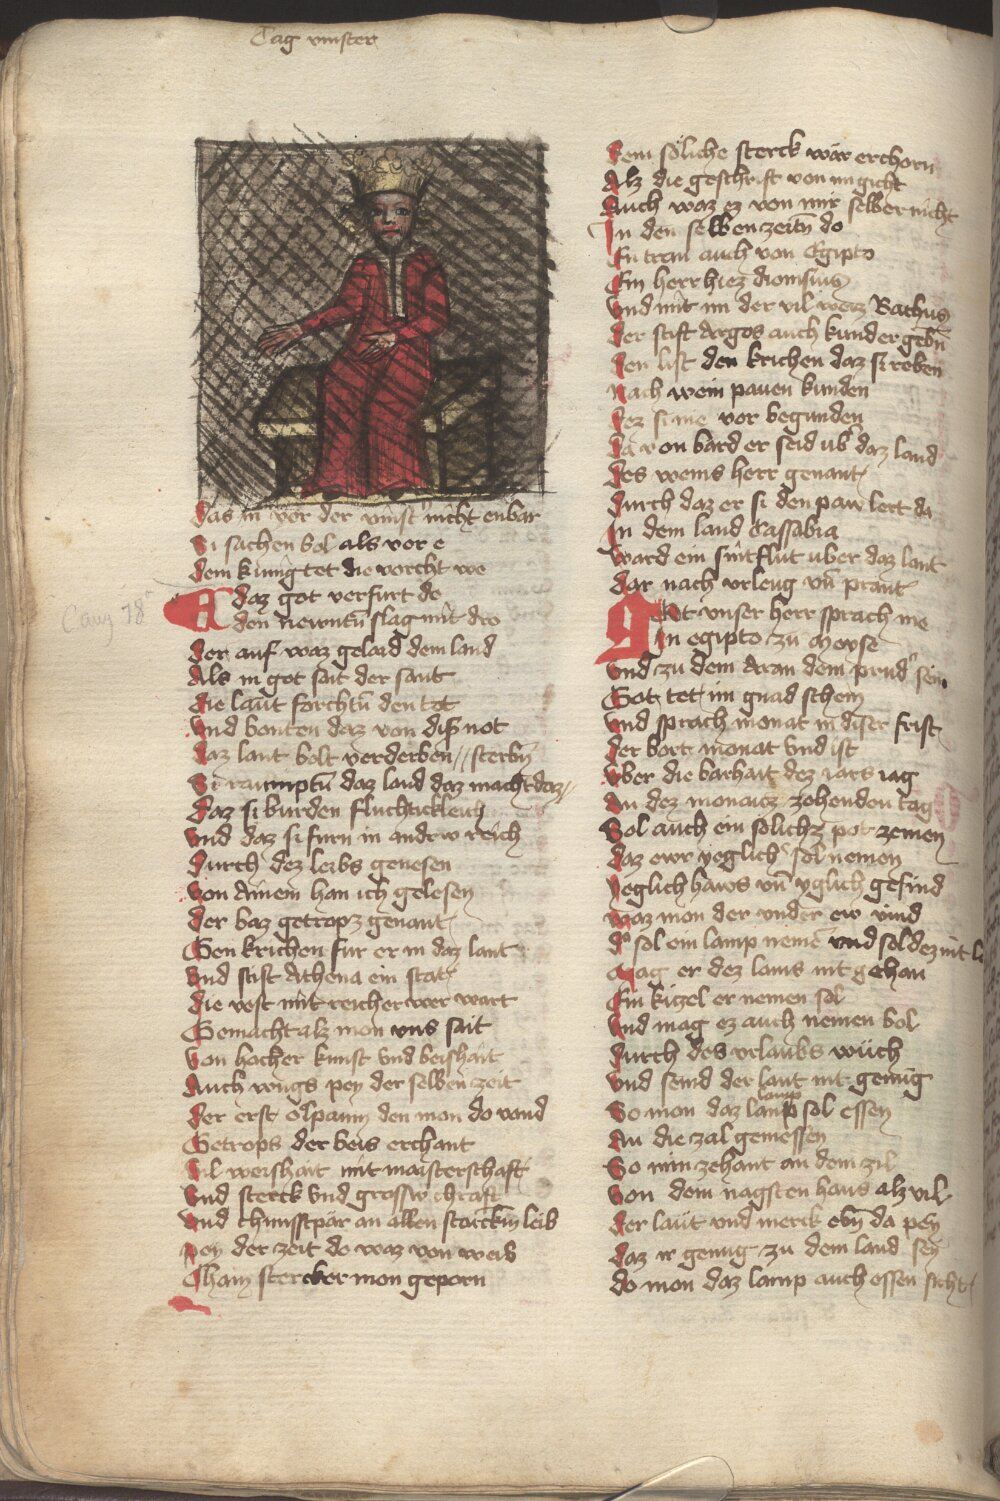 Tag vinster
Das in vor der vinst nicht enbar
Di sachen bol als vor e
Dem kunig tet die vorcht we
A daz got verfurt do
den newntn slag mit dro
Der auf waz gelaid dem land
Als in got sait der sant
Die laut forchtn den tot
Und bonten daz von diser not
Daz lant bolt verderben sterbn
Si raumptn daz land daz macht daz
Daz si burden fluchtickleich
Und daz si furn in andrw reich
Durch dez leibs genesen
Von Ainem han ich gelesen
Der baz getropz genant
Gen krichen fur er in daz lant
Und stift Athena ein stat
Die vest mit reicher wer wart
Gemacht alz mon uns sait
Von hocher kunst vnd beishait
Auch wugs pey der selben zeit
Der erst olpaum den mon do vand
Getrops der beis erchant
Vil weishait mit maisterschaft
Und sterck Vnd grossw chraft
Und chunstpär an allen starckin leib
Pey der zeit do waz von weib
Cham stercker mon geporn
Dem söliche sterck wär erchorn
Alz die geschrift von im gicht
Auch waz ez von mir selber nicht
In den selben zeitn do
Ein tran auch von Egipto
Ein herr hiez dionisius
Und mit im der vil weis Bachus
Der stift Argos auch kunder gebn
Den list den krichen daz si reben
Nach wein pauen kunden
Dez si me vor begunden
Da von bard er seid ub daz land
Des weins herr genant
Durch daz er si den paw lert da
In dem land Cassabia
Ward ein sintflut uber daz lant
Dar nach vrleug vn prant
Got vnser herr sprach me
In egipto zu Moyse
Und zu dem Aran dem prudr sein
Got tet im gnad schein
Und sprach monat in diser frist
Der bort monat Vnd ist
Uber die barhait dez iars tag
An dez monatz zehenden tag
Sol auch ein solichz pot zemen
Daz ewr yeglich sol nemen
Yeglich haws vn yglich gesind
Waz mon der vnder ew vind
Do sol ein lamp neme vnd sol dez nit
Mag er dez lams nit gehan
Ein kitzel er nemen sol
Und mag ez auch nemen bol
Durch des vrlaubs wuch
Und seind der laut nit genug
lamp
So mon daz lamp sol essen
An die zal gemessen
So nim zehant an dem zil
Von dem nagsten haus alz vil
Der laut vnd merck ebn da pey
Daz ir genug zu dem land sey
Do mon daz lamp auch essen sicht